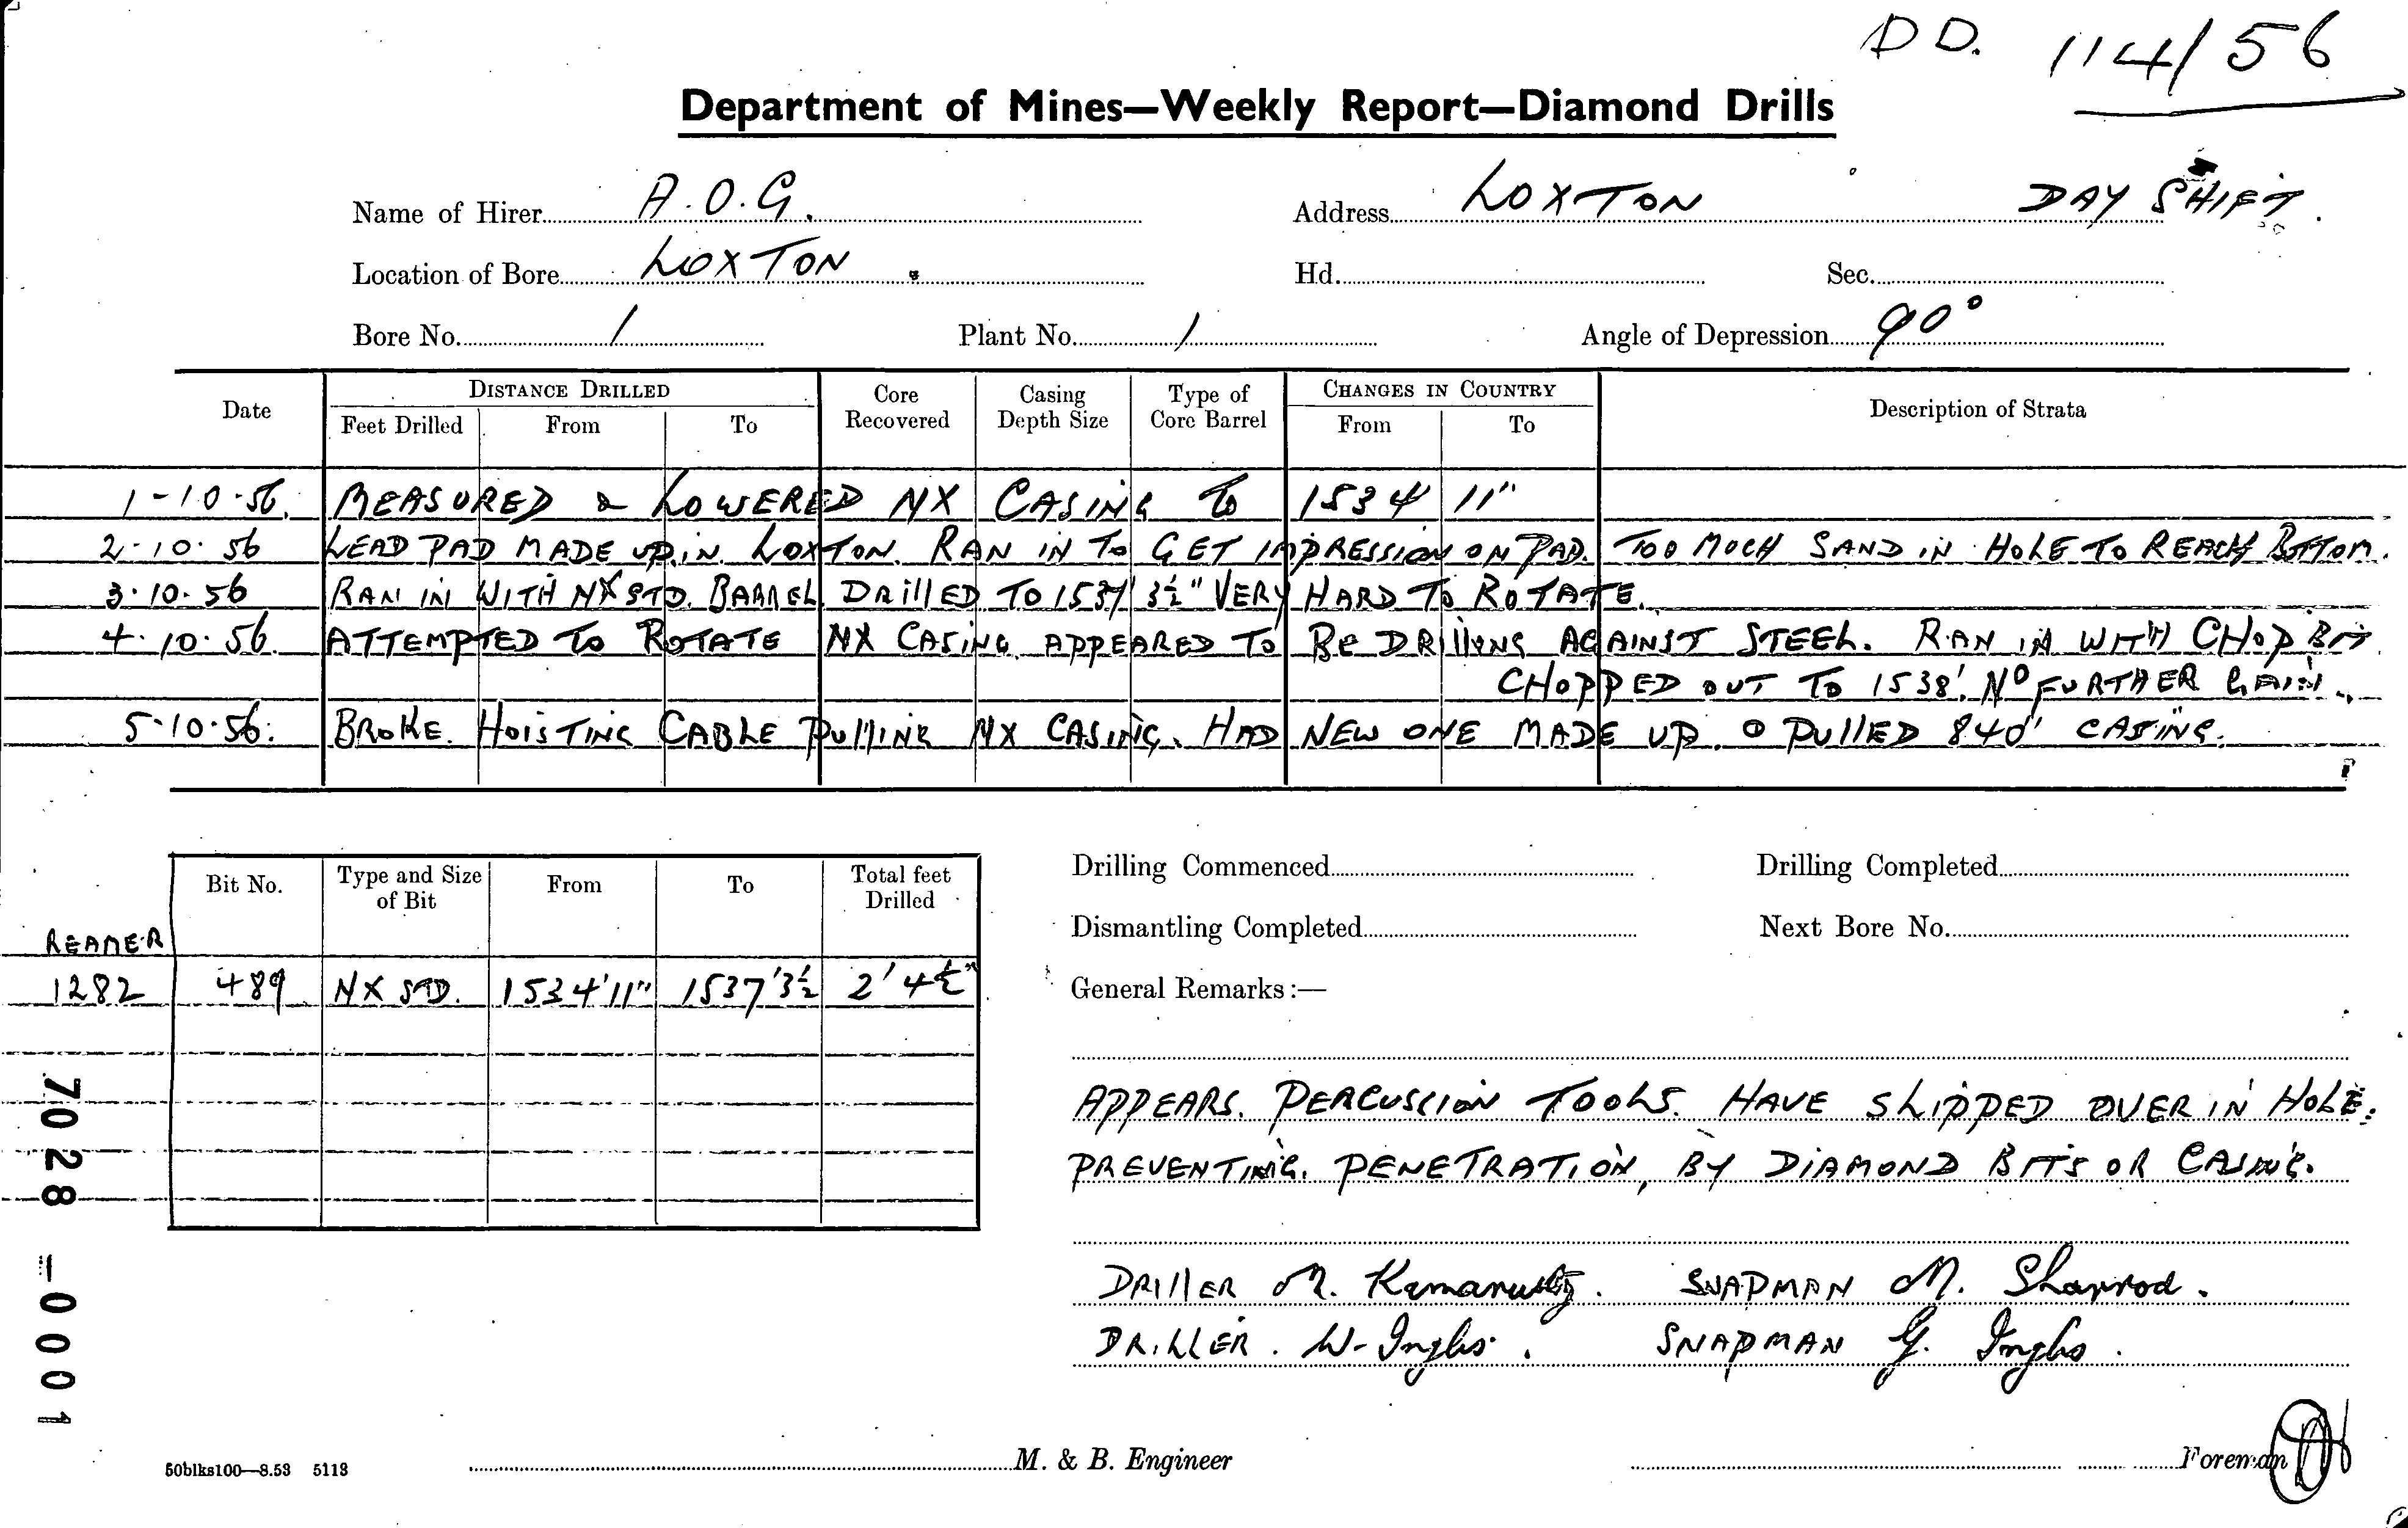 DD. 114/56
Department of Mines—Weekly Report—Diamond Drills
Name of Hirer A.O.G. Address LOXTON DAY SHIFT.
Location of Bore LOXTON. Hd. Sec.
Bore No. 1 Plant No. 1 Angle of Depression 90°
Date DISTANCE DRILLED Core Recovered Casing Depth Size Type of Core Barrel CHANGES IN COUNTRY Description of Strata
Feet Drilled From To From To
1-10-56. MEASURED & LOWERED NX CASING To 1534 11"
2-10-56 LEAD PAD MADE UP IN LOXTON. RAN IN To GET IMPRESSION ON PAD. Too MUCH SAND IN HOLE To REACH BOTTOM.
3-10-56 RAN IN WITH NX STD. BARREL. DRillED TO 1537' 3½" VERY HARD To ROTATE.
4-10-56. ATTEMPTED To ROTATE NX CASING. APPEARED To Be DRilling AGAINST STEEL. RAN IN WITH CHOP BIT
CHOPPED OUT To 1538'. No FURTHER GAIN.
5-10-56. BROKE HOISTING CABLE PullING NX CASING. HAD NEW ONE MADE UP. PullED 840' CASING.
Bit No. Type and Size of Bit From To Total feet Drilled
REAMER
1282 489 NX STD. 1534'11" 1537'3½ 2'4½"
Drilling Commenced Drilling Completed
Dismantling Completed Next Bore No.
General Remarks:—
APPEARS. PERCUSSION TOOLS. HAVE SLIPPED OVER IN HOLE.
PREVENTING. PENETRATION, BY DIAMOND BITS OR CASING.
DRIllER M. SNAPMAN M. Sharrod.
DRILLER. W. Inglis. SNAPMAN G. Inglis.
7028-0001
50blks100—8.53 5113 M. & B. Engineer Foreman